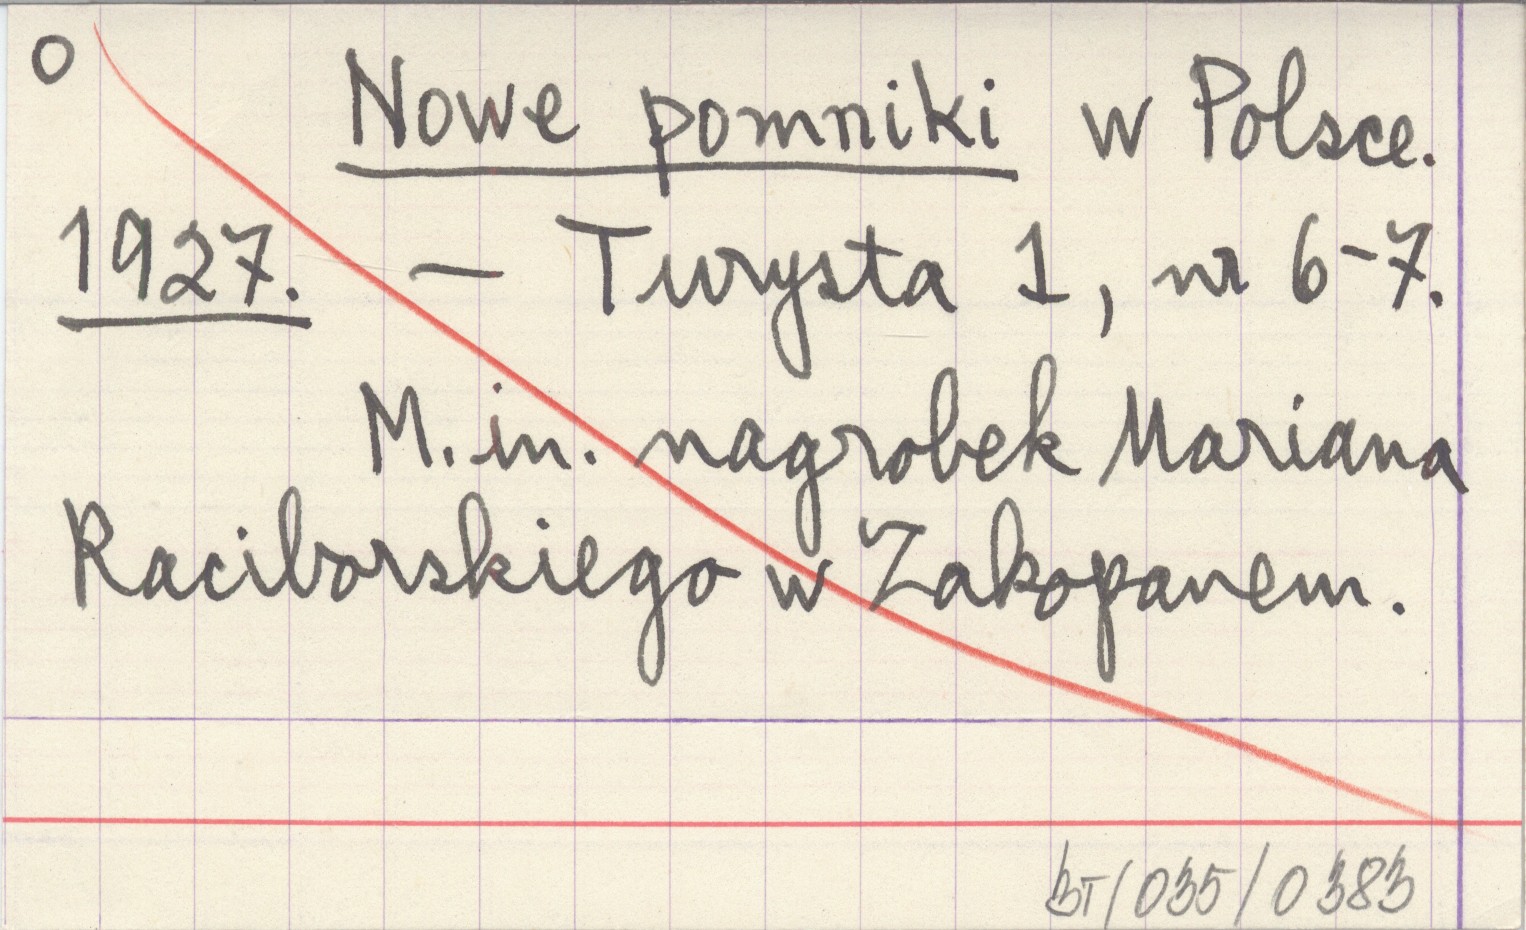 O
Nowe pomniki w Polsce.
1927. – Turysta 1, nr 6-7.
M. in. nagrobek Mariana
Raciborskiego w Zakopanem.
BT/035/0383